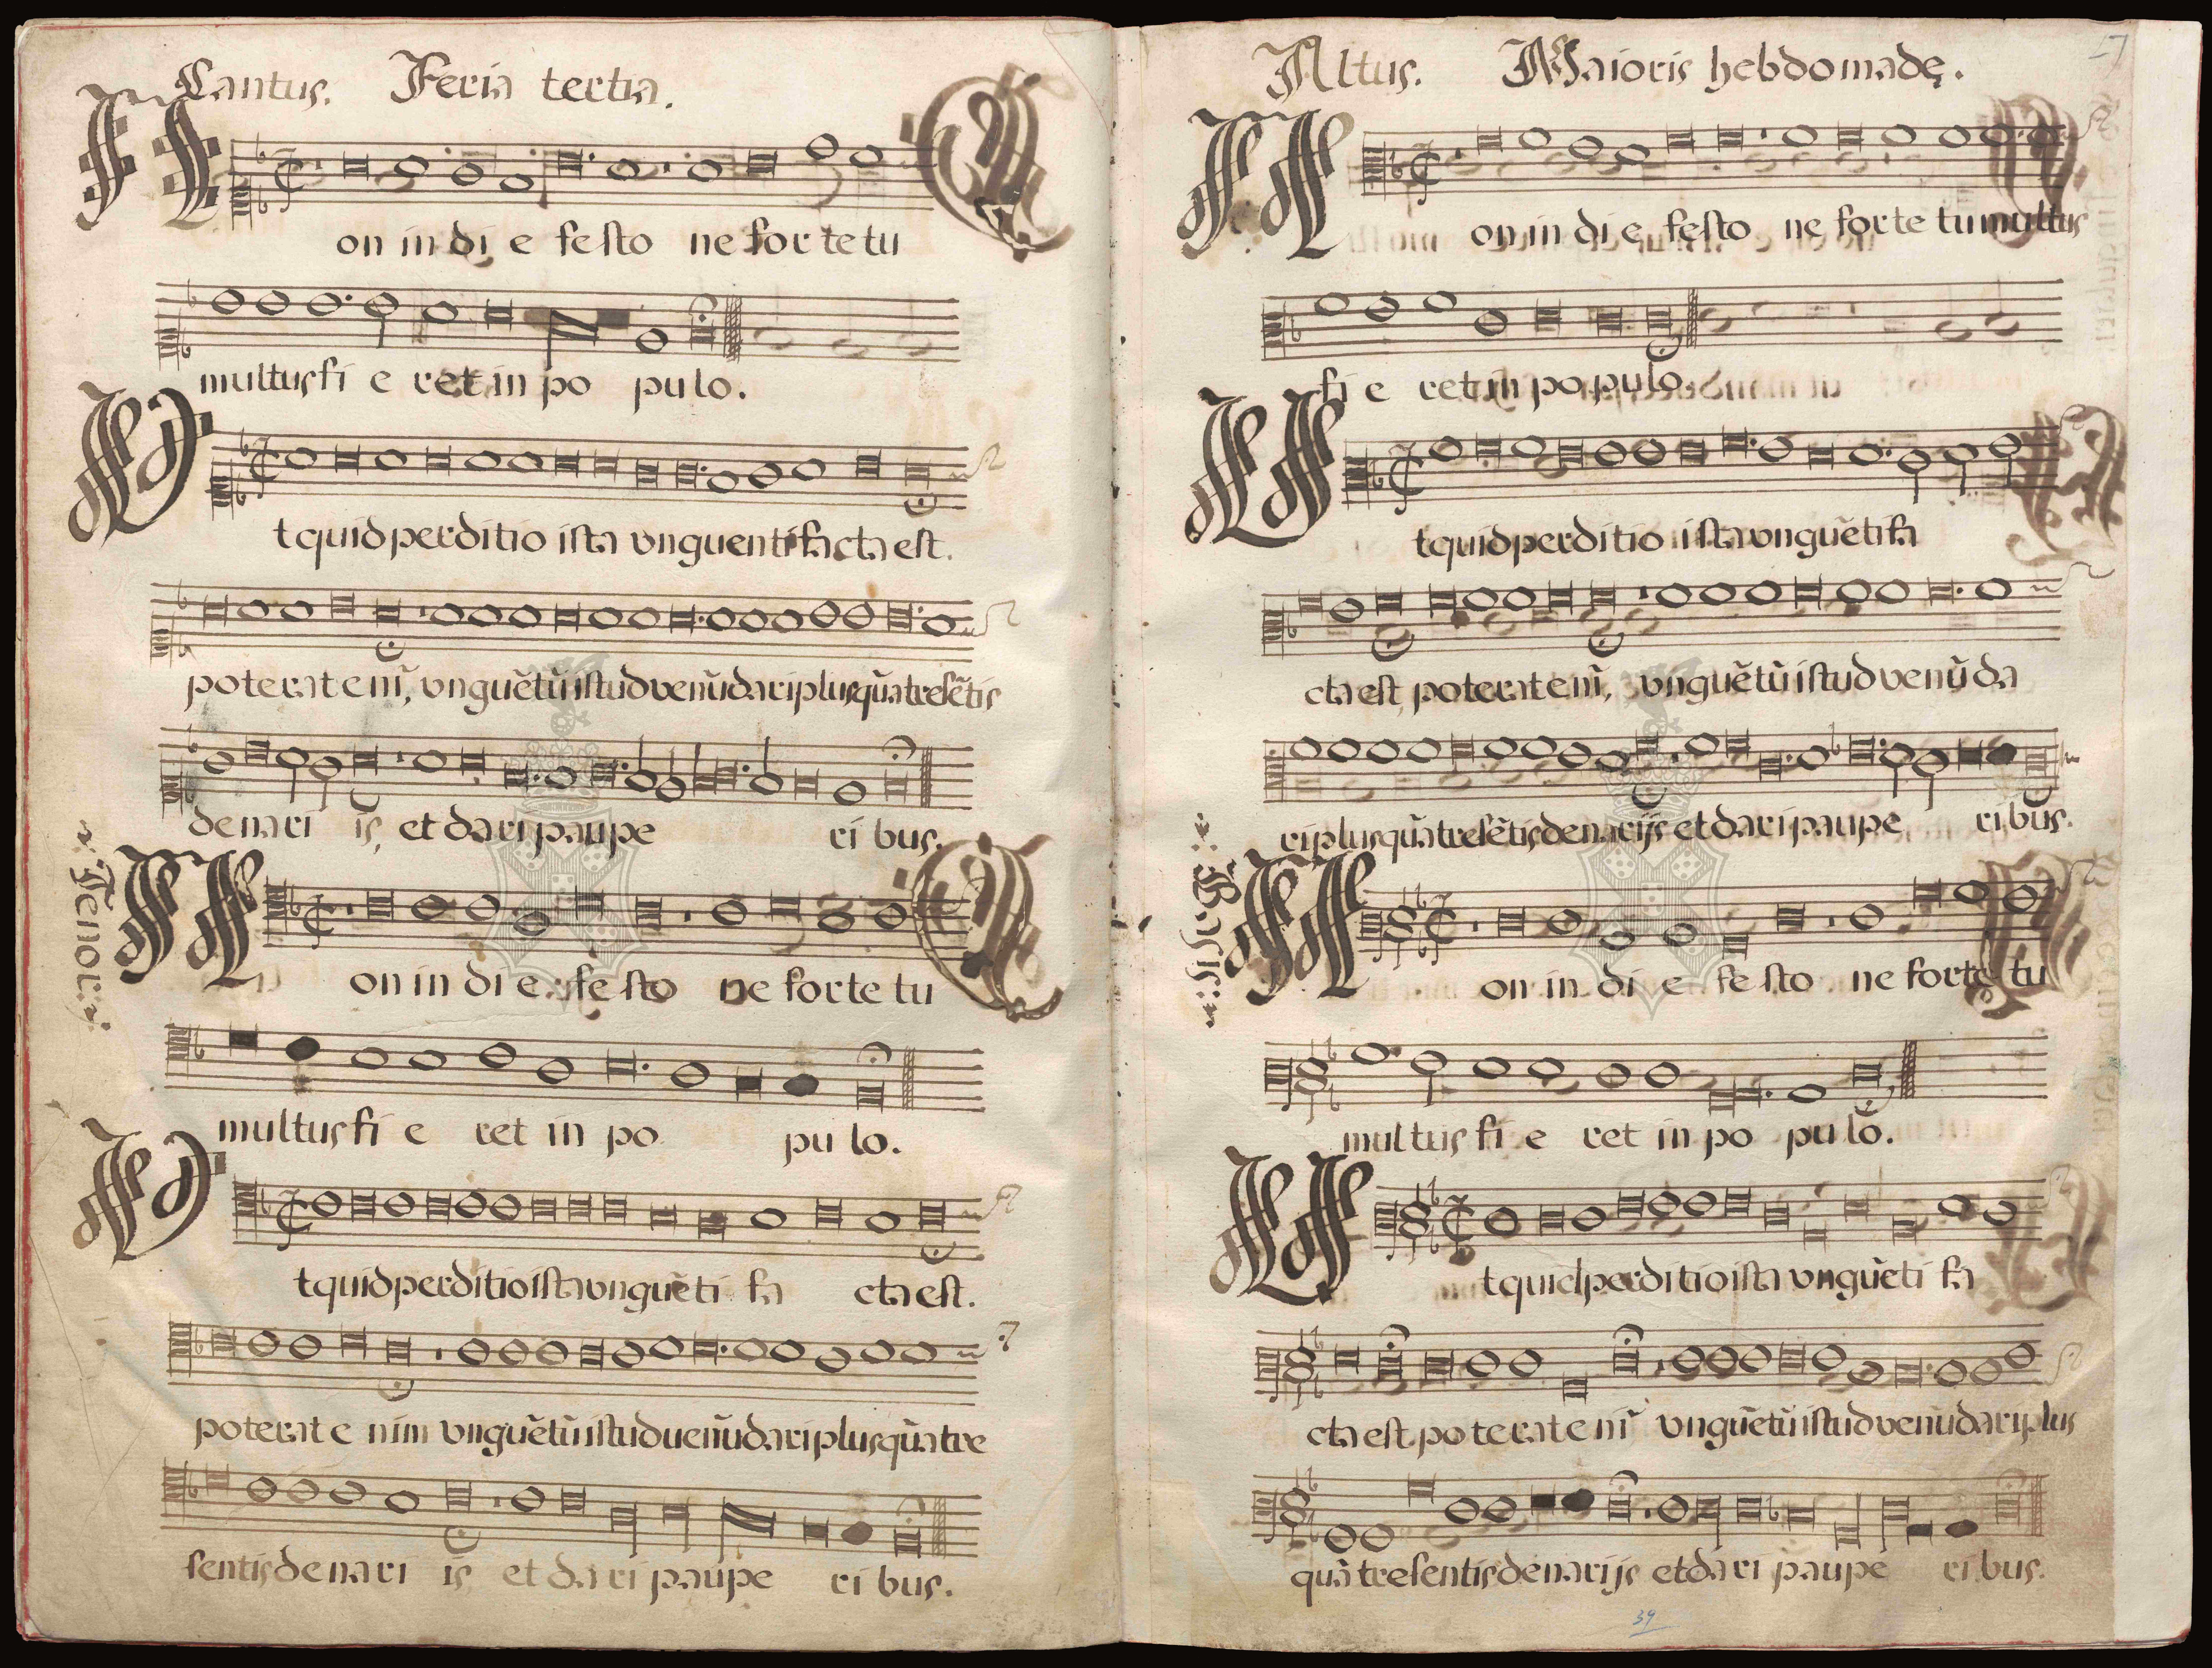 Cantus. Feria tertia.
Non in di e festo ne for te tu
multus fi e ret in po pu lo.
Vt quid perditio ista vnguenti facta est.
poterat eni᷉, vngue᷉tu᷉ istud venu᷉dari plus qua᷉ trese᷉tis
denari is, et dari paupe ri bus.
Tenor
Non in di e festo ne for te tu
multus fi e ret in po pu lo.
Vt quid perditio ista vngue᷉ti fa cta est.
poterat e nim vngue᷉tu᷉ istud uenu᷉dari plus qua᷉ tre
sentis denari is et dari paupe ri bus.
Altus. Maioris hebdomadę.
17
Non in di e festo ne forte tu multus
fi e ret in po pulo.
Vt quid perditio ista vngue᷉ti fa
cta est, poterat eni᷉, vngue᷉tu᷉ istud venu᷉da
ri plus qua᷉ trese᷉tis denarijs et dari paupe ri bus.
Non in di e festo ne forte tu
multus fi e ret in po pu lo.
Vt quid perditio ista vngue᷉ti fa
cta est. poterat eni᷉ vngue᷉tu᷉ istud venu᷉dari plus
qua᷉ tresentis denarijs et dari paupe ri bus.
39